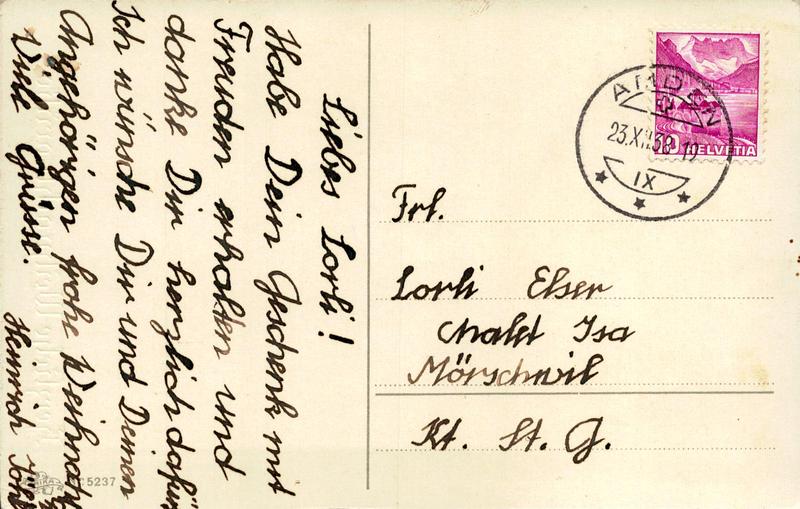 Liebes Lorli!
Habe Dein Geschenk mit
Freuden erhalten und
danke Dir herzlich dafür
Ich wünsche Dir und Deinen
Angehörigen frohe Weihnah
Viele Grüsse.
Heinrich
5237
AMDEN
23.XII.38 12
IX
HELVETIA
Frl.
Lorli Elser
Chalet Isa
Mörschwil
Kt. St. G.